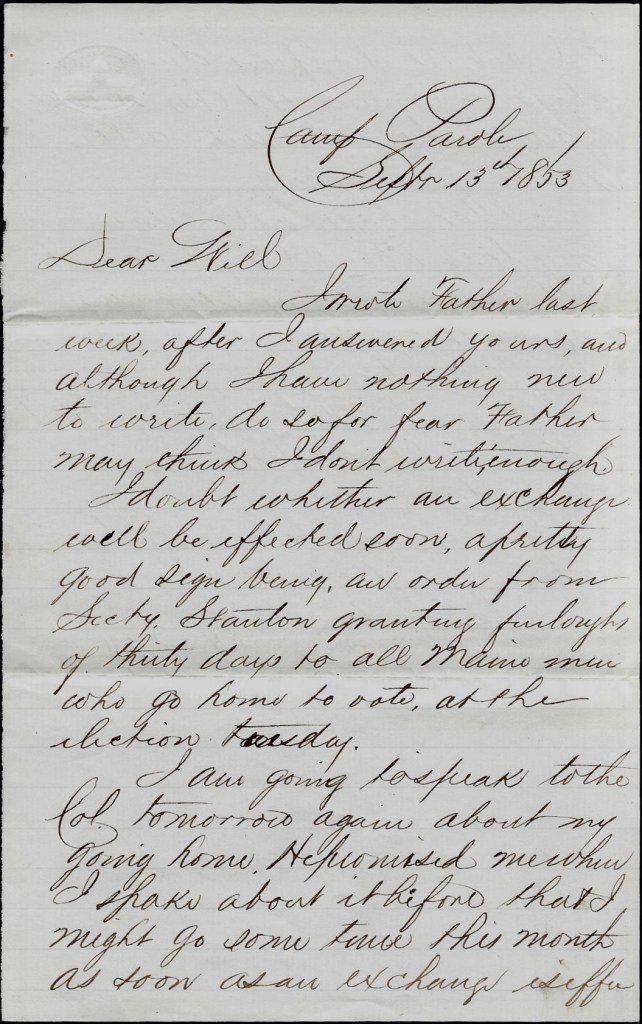 Camp Parole
Septr 13th 1863
Dear Will
I wrote Father last
week, after I answered yours, and
although I have nothing new
to write, do so for fear Father
may think I don't write enough.
I doubt whether an exchange
will be effected soon, a pretty
good sign being, an order from
Secty. Stanton granting furloughs
of thirty days to all Maine men
who go home to vote, at the
election tuesday.
I am going to speak to the
Col. tomorrow again about my
going home. He promised me when
I spoke about it before that I
might go some time this month
as soon as an exchange is effec